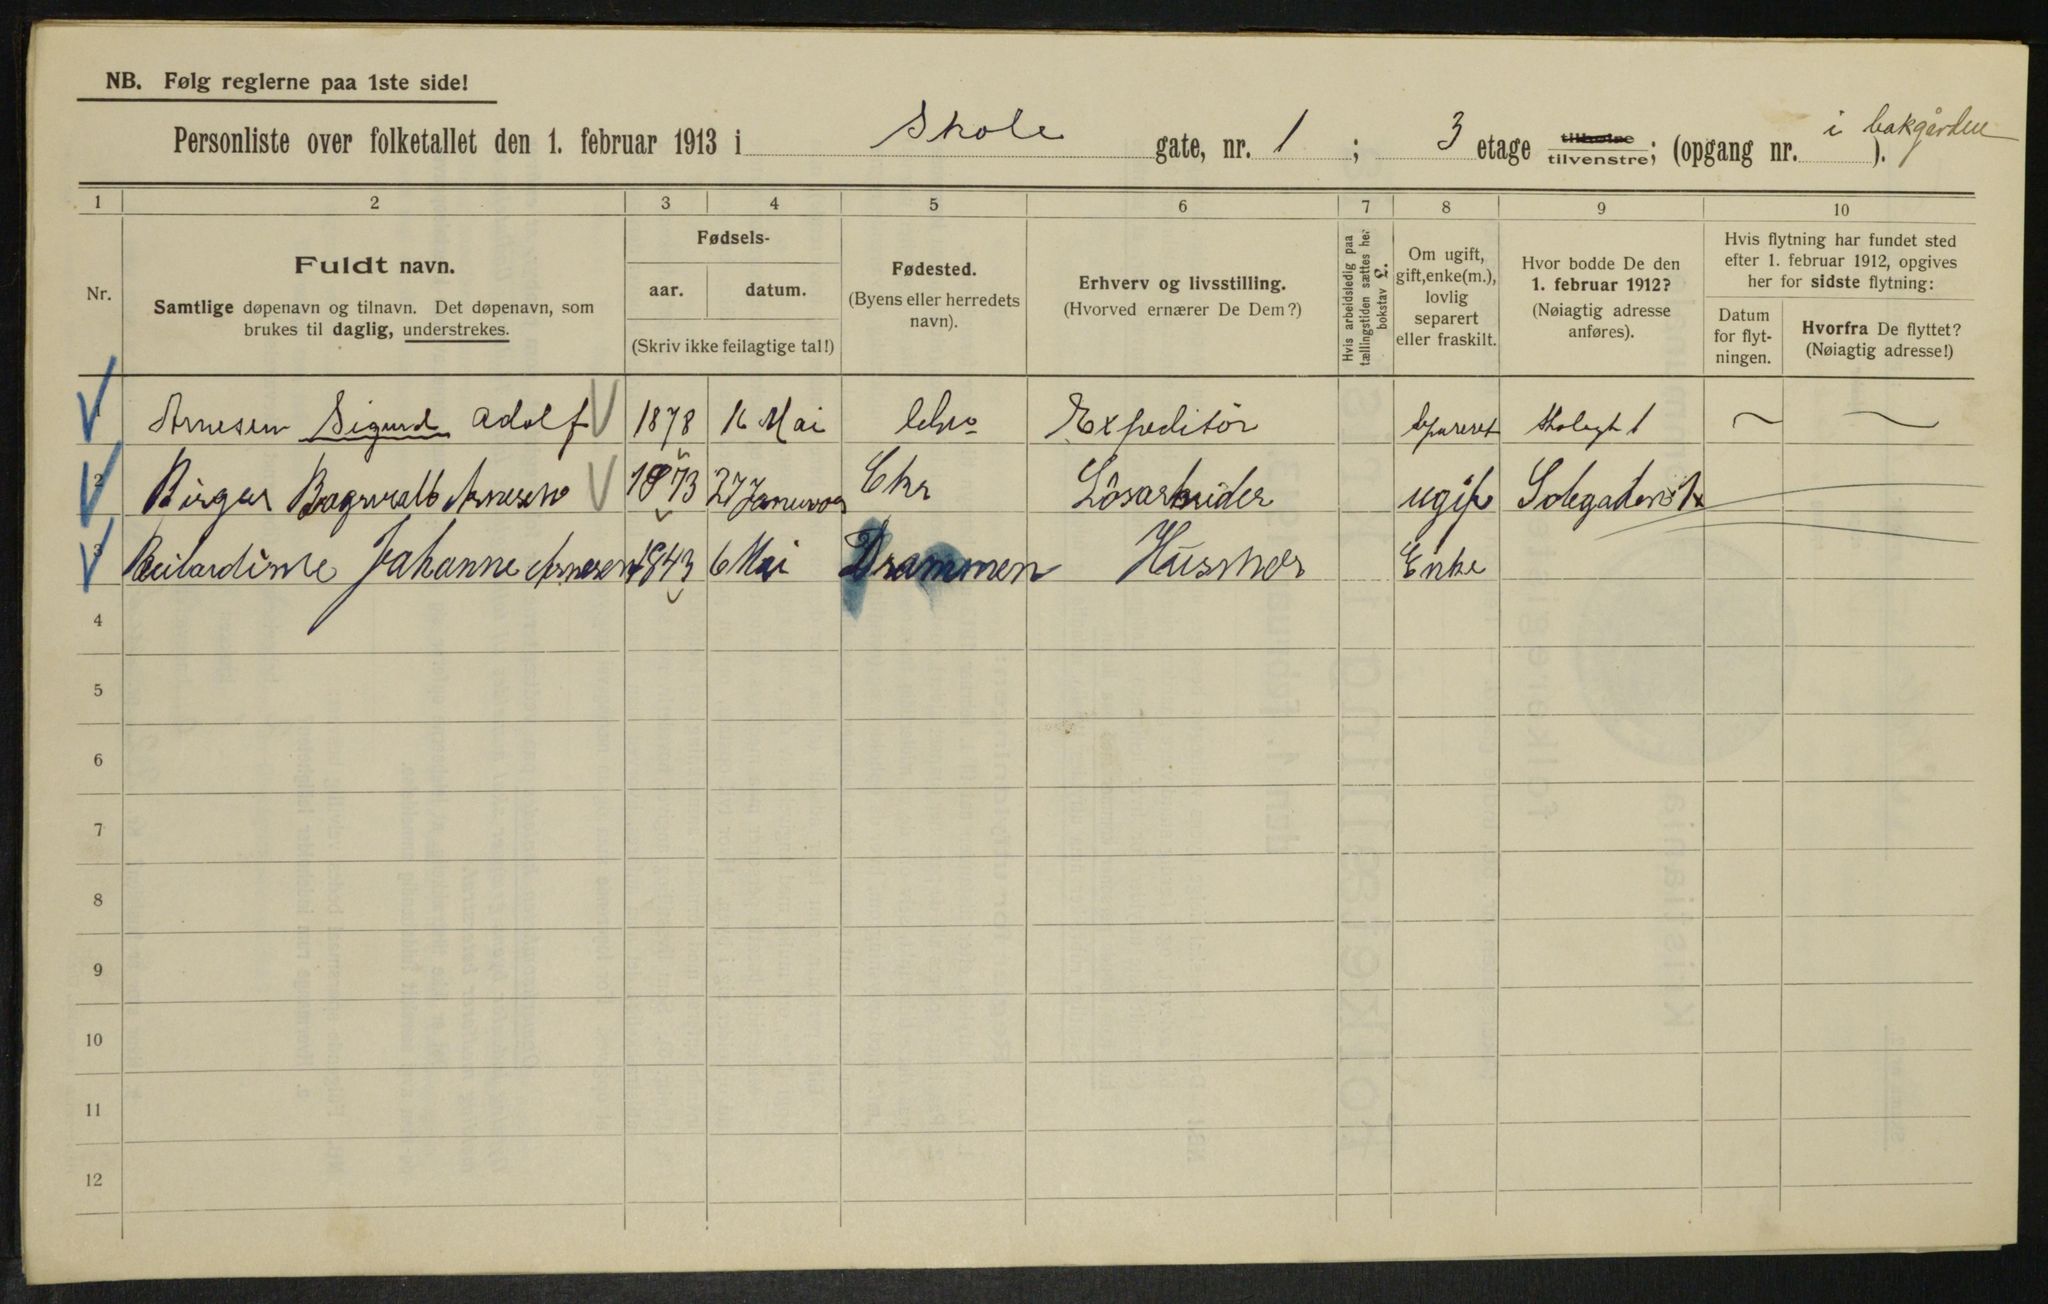 NB. Følg reglerne paa 1ste side!
Personliste over folketallet den 1. februar 1913 i Skole gate, nr. 1 ; 3 etage tilhøire tilvenstre; (opgang nr. i bakgården ).
1 2 3 4 5 6 7 8 9 10
Nr.
Fuldt navn.
Samtlige døpenavn og tilnavn. Det døpenavn, som
brukes til daglig, understrekes.
Fødsels-
aar. datum.
(Skriv ikke feilagtige tal!)
Fødested.
(Byens eller herredets
navn).
Erhverv og livsstilling.
(Hvorved ernærer De Dem?)
Hvis arbeidsledig paa
tællingstiden sættes her
bokstav L.
Om ugift,
gift, enke(m.),
lovlig
separert
eller fraskilt.
Hvor bodde De den
1. februar 1912?
(Nøiagtig adresse
anføres).
Hvis flytning har fundet sted
efter 1. februar 1912, opgives
her for sidste flytning:
Datum
for flyt-
ningen.
Hvorfra De flyttet?
(Nøiagtig adresse!)
1 Arnesen Sigurd Adolf 1878 16 Mai Expeditör Skolegt 1 ~ ~
2 Birger Arnesen 1873 27 Januar Chr Lösarbeider ugift
3 Johanne Arnesen 1843 6 Mai Drammen Husmor Enke
4
5
6
7
8
9
10
11
12